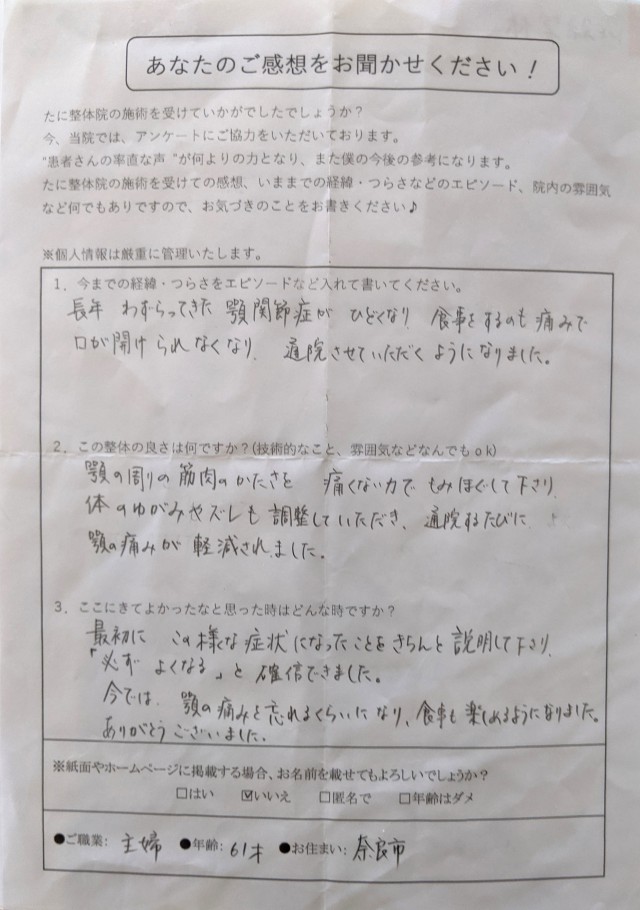 あなたのご感想をお聞かせください！
たに整体院の施術を受けていかがでしたでしょうか？
今、当院では、アンケートにご協力をいただいております。
"患者さんの率直な声 "が何よりの力となり、また僕の今後の参考になります。
たに整体院の施術を受けての感想、いままでの経緯・つらさなどのエピソード、院内の雰囲気
など何でもありですので、お気づきのことをお書きください♪
※個人情報は厳重に管理いたします。
1．今までの経緯・つらさをエピソードなど入れて書いてください。
長年 わずらってきた 顎関節症が ひどくなり 食事をするのも痛みで
口が開けられなくなり、 通院させていただくようになりました。
2．この整体の良さは何ですか？(技術的なこと、雰囲気などなんでもｏｋ)
顎の周りの筋肉のかたさを 痛くない力でもみほぐして下さり、
体のゆがみやズレも調整していただき、通院するたびに
顎の痛みが軽減されました。
3．ここにきてよかったなと思った時はどんな時ですか？
最初に この様な症状になったことをきちんと説明して下さり、
「必ず よくなる」と確信できました。
今では、顎の痛みを忘れるくらいになり、食事も楽しめるようになりました。
ありがとうございました。
※紙面やホームページに掲載する場合、お名前を載せてもよろしいでしょうか？
□はい ☑いいえ □匿名で □年齢はダメ
●ご職業: 主婦 ●年齢: 61才 ●お住まい: 奈良市